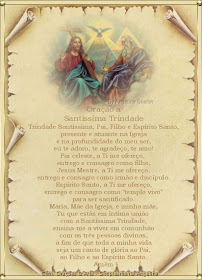 Oração a
Santíssima Trindade
Trindade Santíssima, Pai, Filho e Espírito Santo,
presente e atuante na Igreja
e na profundidade do meu ser,
eu te adoro, te agradeço, te amo!
Pai celeste, a Ti me ofereço,
entrego e consagro como filho,
Jesus Mestre, a Ti me ofereço,
entrego e consagro como irmão e discípulo
Espírito Santo, a Ti me ofereço,
entrego e consagro como "templo vivo"
para ser santificado.
Maria, Mãe da Igreja, e minha mãe,
Tu que estás em íntima união
com a Santíssima Trindade,
ensina-me a viver em comunhão
com as três pessoas divinas,
a fim de que toda a minha vida
seja um canto de glória ao Pai,
ao Filho e ao Espírito Santo
Amém